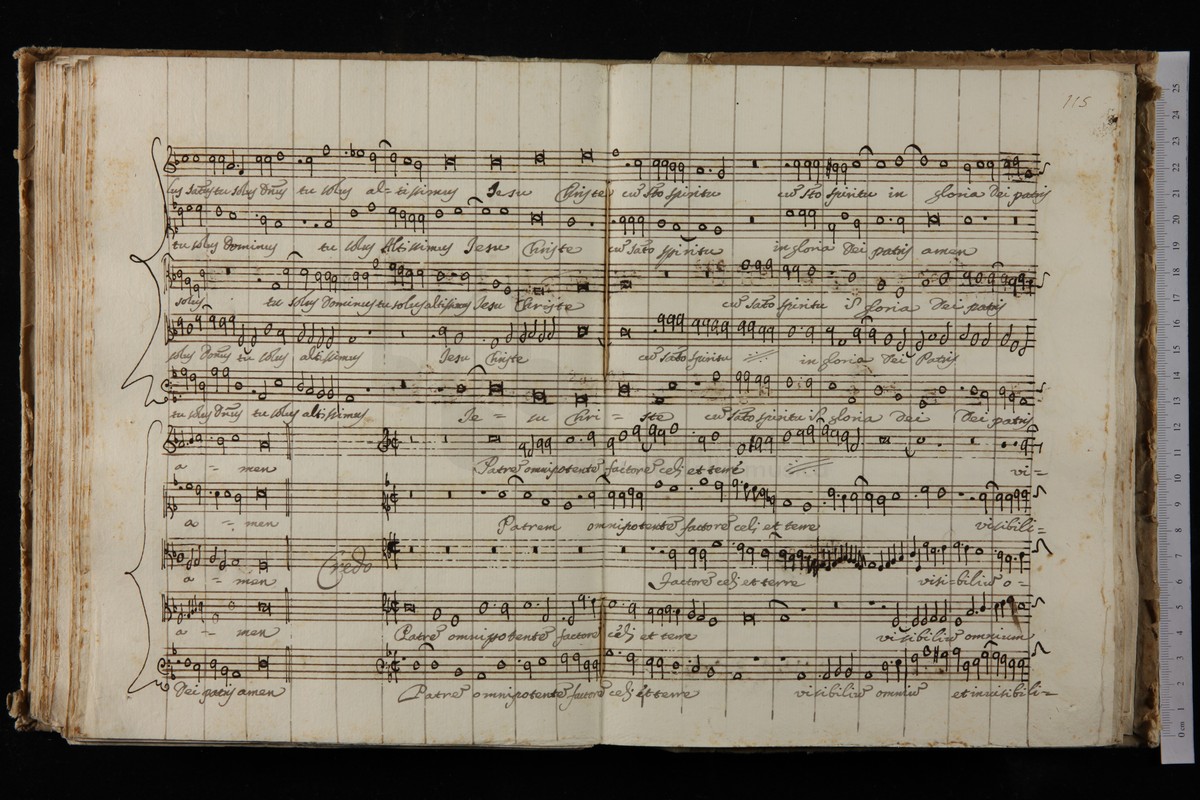 115
lus sanctus tu solus dñus tu solus al-tissimus Jesu Christe cũ sto spiritu cũ sto spiritu in gloria Dei patris
tu solus Dominus tu solus Altissimus Jesu Christe cũ sãto spiritu in gloria Dei patris amen
solus tu solus dominus tu solus altissimus Jesu Christe cũ sãto spiritu ĩ gloria Dei patris
solus Dom̃us tu solus altissimus Jesu Christe cũ sãto spiritu in gloria Dei Patris
tu solus Dñus tu solus altissimus Je = su Chri = ste cũ sãto spiritu ĩ gloria Dei Dei patris
a = men Patrẽ omnipotentẽ factorẽ celi et terre vi=
a = men Patrem omnipotentẽ factorẽ celi et terre visibili=
a = men Credo factorẽ celi et terre visi=biliũ o =
a = men Patrẽ omnipotentẽ factorẽ celi et terre visibiliũ omnium
Dei patris amen Patrẽ omnipotentẽ factorẽ celi et terre visibiliũ omniũ et invisibili=
0 cm 1 2 3 4 5 6 7 8 9 10 11 12 13 14 15 16 17 18 19 20 21 22 23 24 25